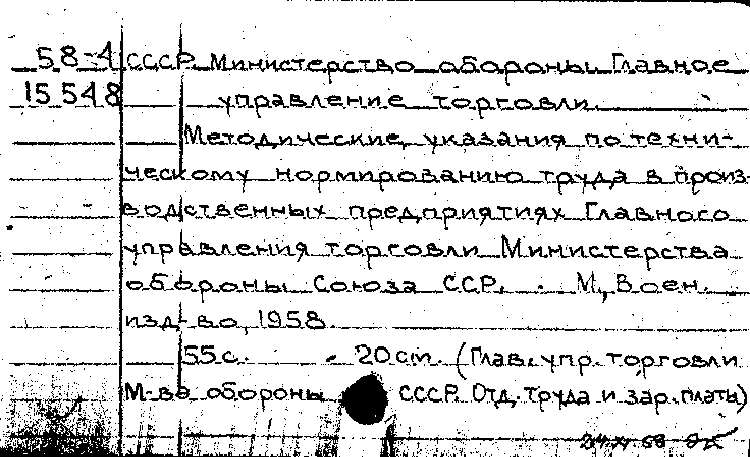 58-4 СССР. Министерство обороны. Главное
15548 управление торговли.
Методические указания по техни-
ческому нормированию труда в произ-
водственных предприятиях Главного
управления торговли Министерства
обороны Союза ССР. М., Воен.
изд-во, 1958.
55 с. 20 cm. (Глав. упр. торговли
М-ва обороны СССР. Отд. труда и зар. платы)